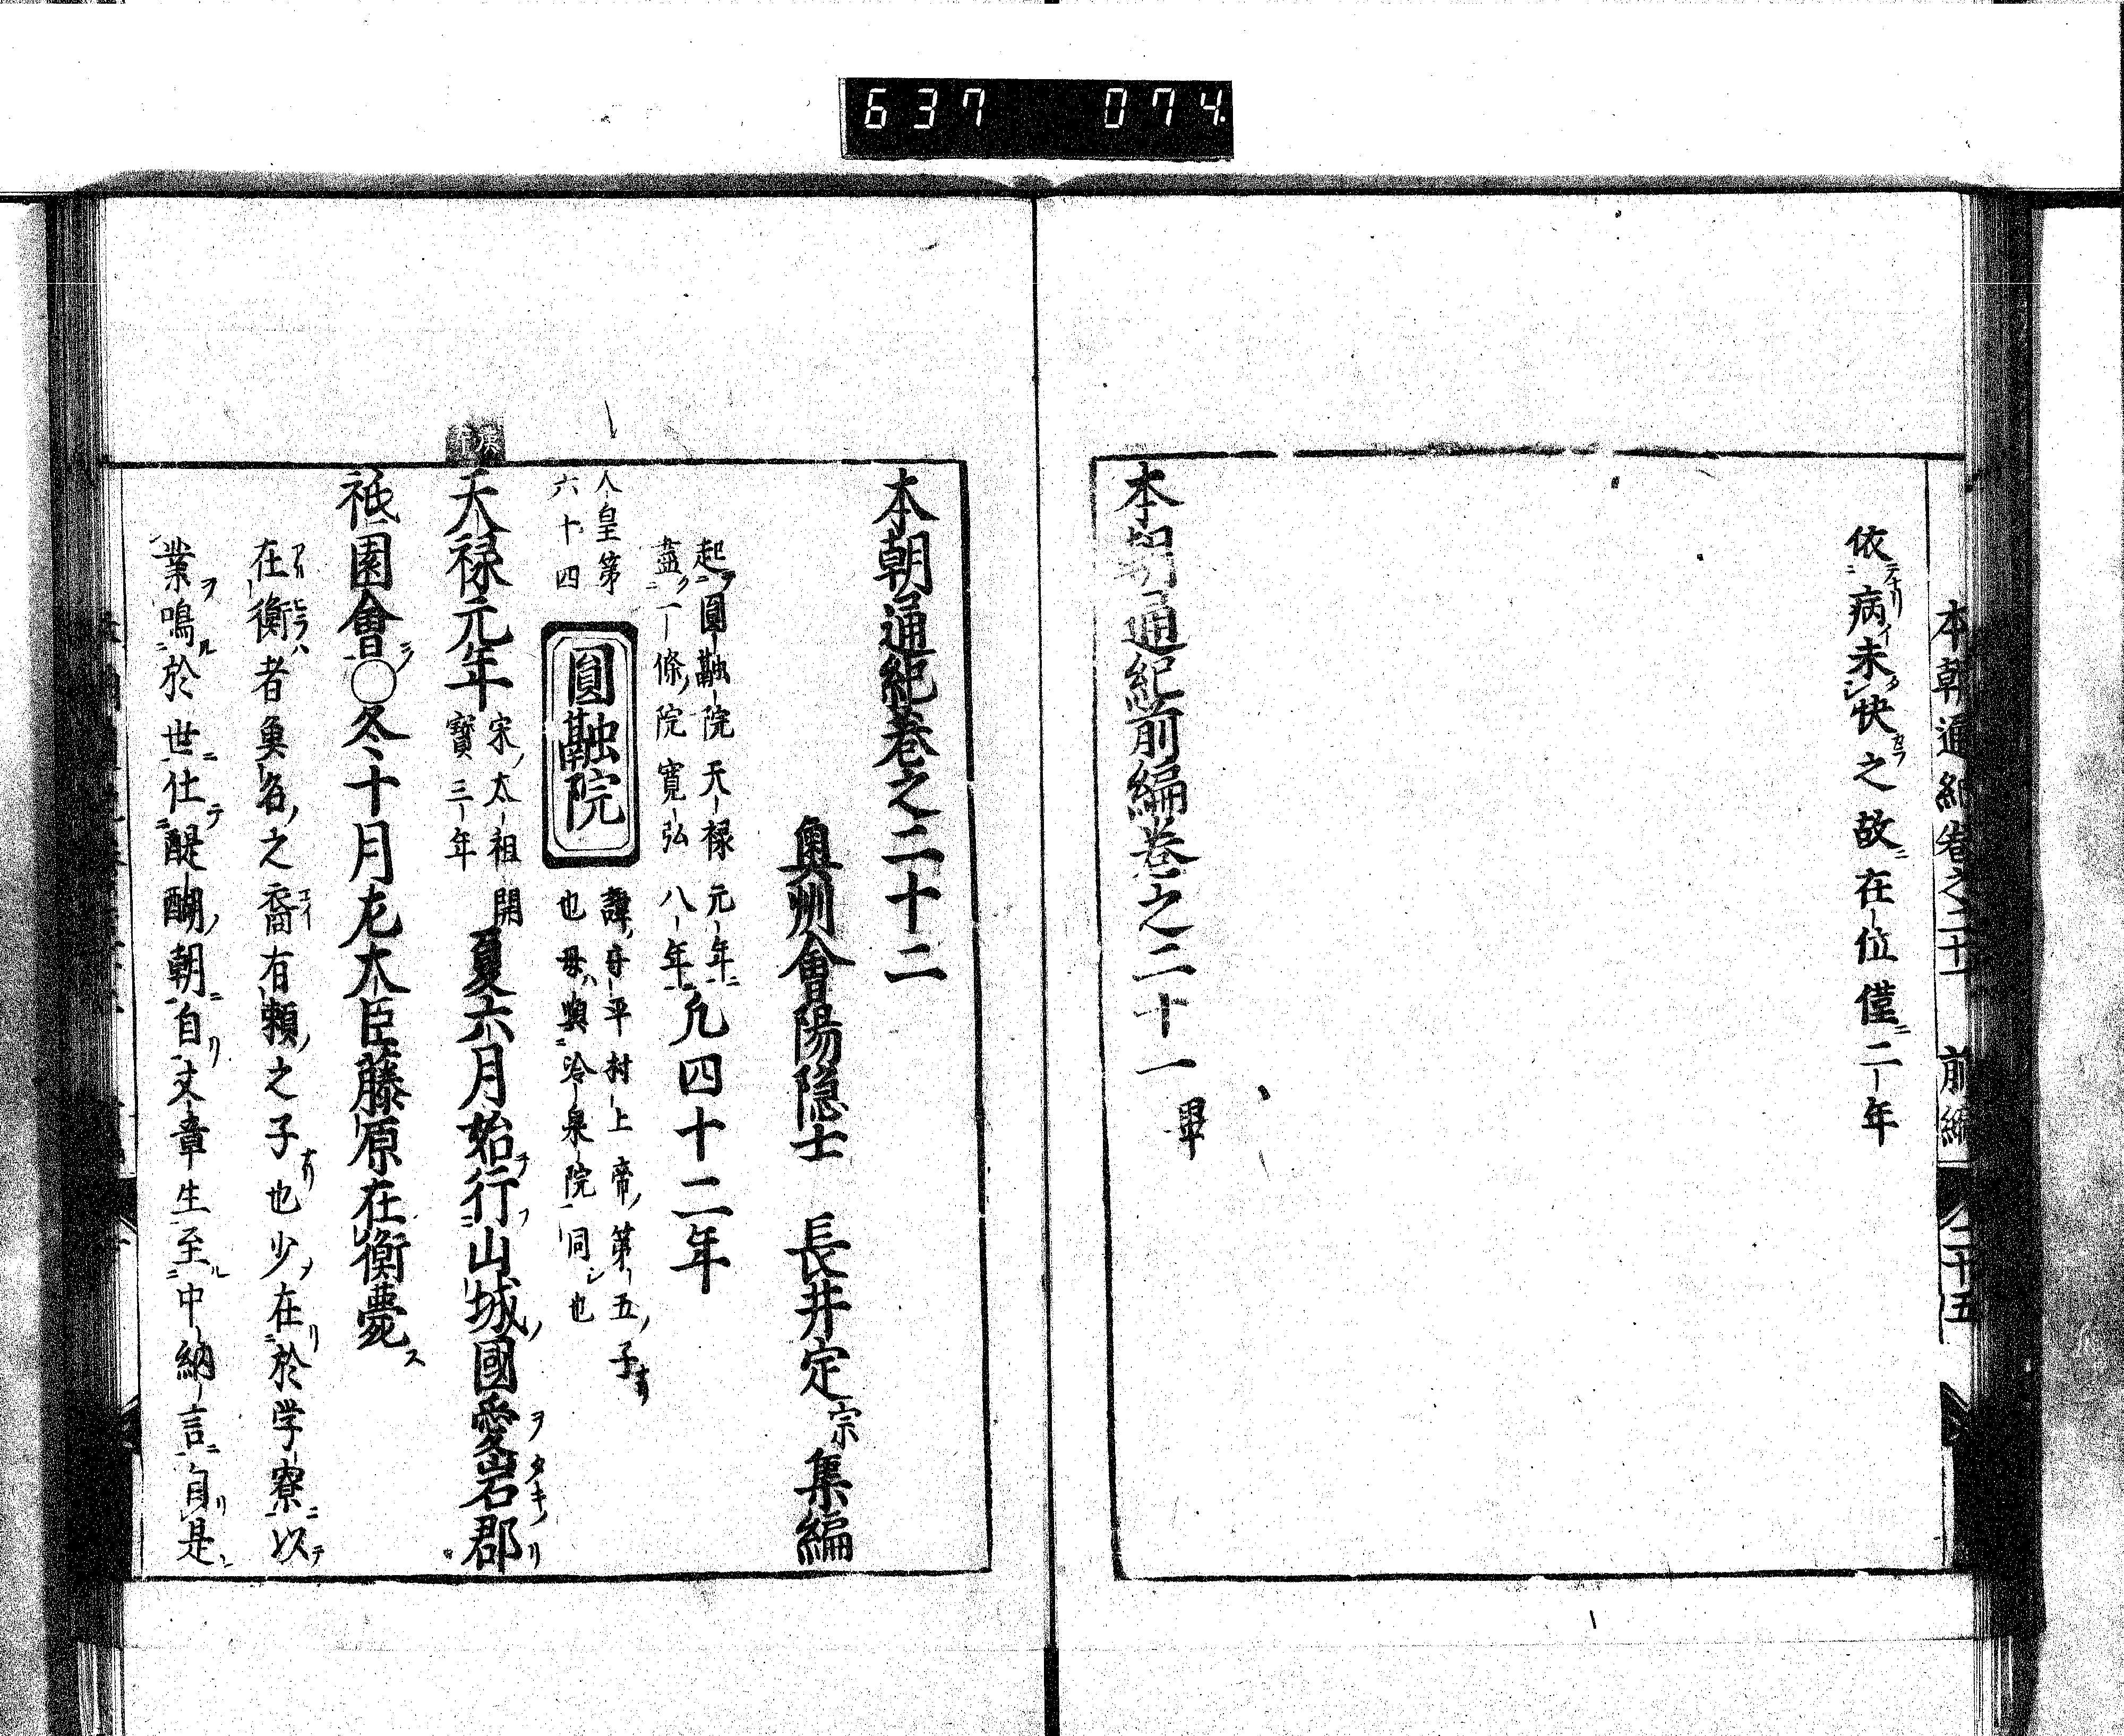 637 074
本朝通紀卷之二十一 前編 二十五
依病未快之故在位僅二年
本朝通紀前編卷之二十一 畢
本朝通紀卷之二十二
奥州會陽隠士 長井定宗集編
起圓融院天禄元年
盡一條院寛弘八年
凢四十二年
人皇第
六十四
圓融院
諱守平村上帝第五子
也母與冷泉院同也
庚午
天禄元年
宋太祖開
寶三年
夏六月始行山城國愛宕郡
祗園會○冬十月左大臣藤原在衡薨
在衡者魚名之裔有頼之子也少在於学寮以
業鳴於世仕醍醐朝自文章生至中納言自是